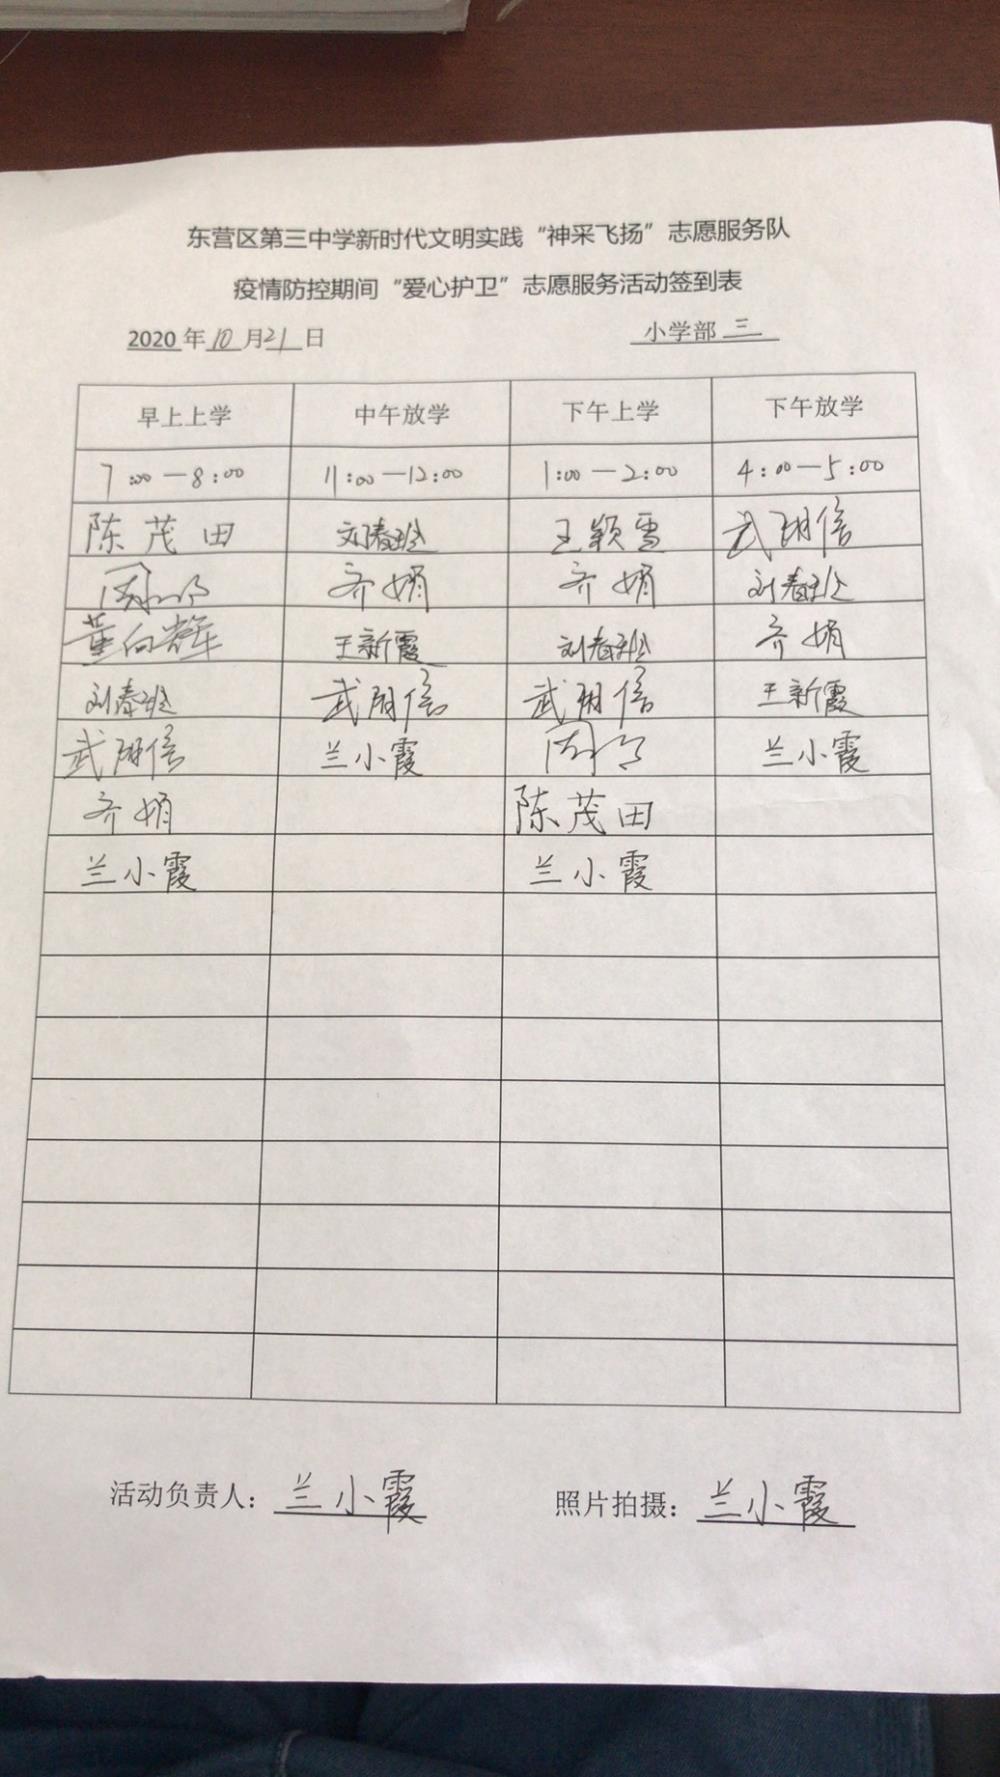 东营区第三中学新时代文明实践“神采飞扬”志愿服务队
疫情防控期间“爱心护卫”志愿服务活动签到表
2020年10月21日 小学部 三
早上上学 中午放学 下午上学 下午放学
7:00—8:00 11:00—12:00 1:00—2:00 4:00—5:00
陈茂田 刘春班 王颖雪 武朋信
齐娟 齐娟 刘春班
董向辉 王新霞 刘春班 齐娟
刘春班 武朋信 武朋信 王新霞
武朋信 兰小霞 兰小霞
齐娟 陈茂田
兰小霞 兰小霞
活动负责人：兰小霞 照片拍摄：兰小霞